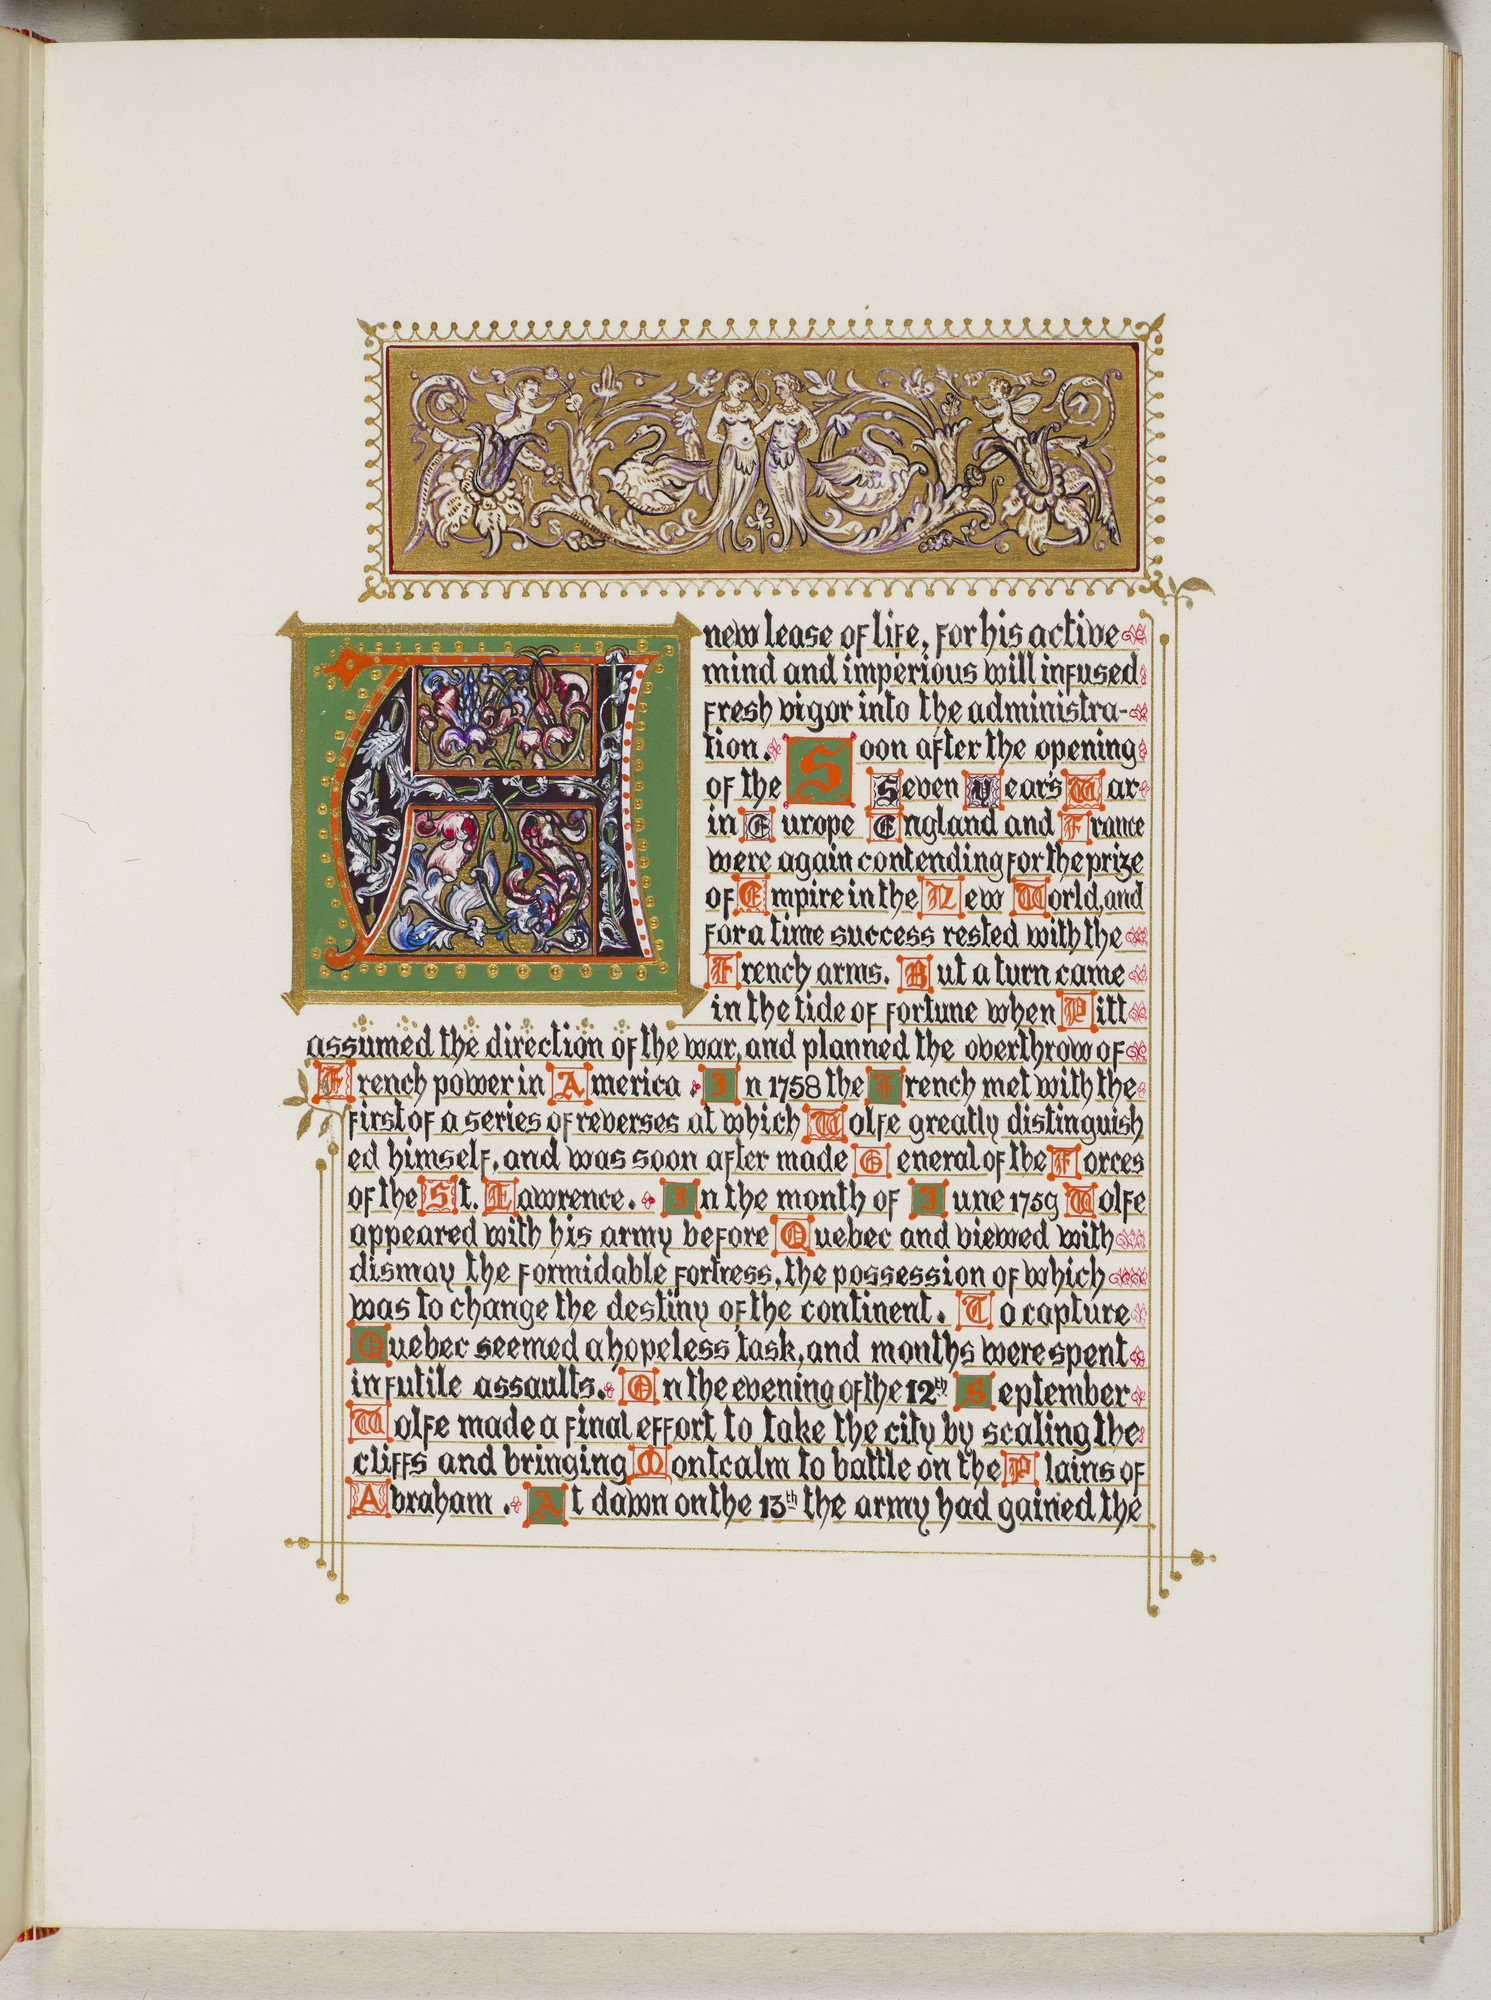 A new lease of life, for his active
mind and imperious will infused
fresh vigor into the administra-
tion. Soon after the opening
of the Seven Years War
in Europe England and France
were again contending for the prize
of Empire in the New World, and
for a time success rested with the
French arms. But a turn came
in the tide of fortune when Pitt
assumed the direction of the war, and planned the overthrow of
French power in America. In 1758 the French met with the
first of a series of reverses at which Wolfe greatly distinguish
ed himself, and was soon after made General of the Forces
of the St. Lawrence. In the month of June 1759 Wolfe
appeared with his army before Quebec and viewed with
dismay the formidable fortress, the possession of which
was to change the destiny of the continent. To capture
Quebec seemed a hopeless task, and months were spent
in futile assaults. On the evening of the 12th September
Wolfe made a final effort to take the city by scaling the
cliffs and bringing Montcalm to battle on the Plains of
Abraham. At dawn on the 13th the army had gained the